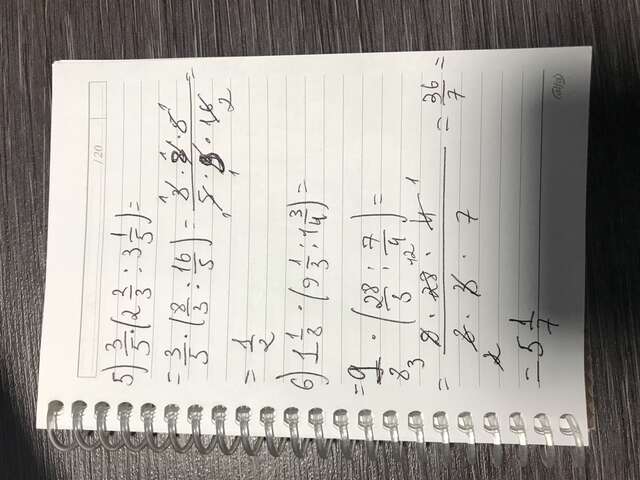 /20
5) 3/5 · (2 2/3 : 3 1/5) =
= 3/5 · (8/3 : 16/5) = 3 · 8 · 5 / 5 · 3 · 16 =
= 1/2
6) 1 1/8 · (9 1/3 : 1 3/4) =
= 9/8 · (28/3 : 7/4) =
= 9 · 28 · 4 / 8 · 3 · 7 = 36/7 =
= 5 1/7